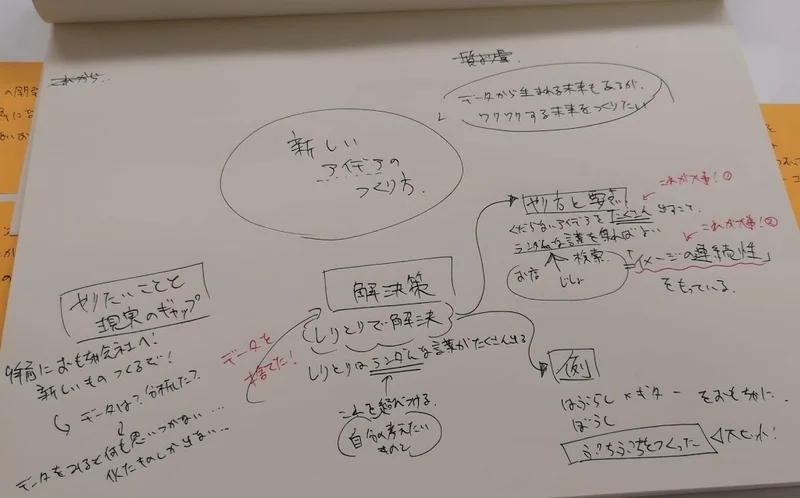 これから..
質より量.
データから生まれる未来もあるが、
ワクワクする未来をつくりたい
新しい
アイデアの
つくり方.
やり方と要点
これが大事!①
くだらないアイデアをたくさん出すこと.
ランダムな言葉を集めればよい
これが大事!②
検索
お店
じしょ
=「イメージの連続性」
をもっている.
やりたいことと
現実のギャップ
特前におもちゃ会社へ!
新しいものつくるで!
データは?分析した?
データをみると何も思いつかない...
似たものしか出ない...
データを
捨てた!
解決策
しりとりで解決
しりとりはランダムな言葉がたくさん出る
これを結びつける.
自分の考えたい
ものと
例
はぶらし×ギター をおもちゃに.
ぼうし
ぷちぷちをつくった
大ヒット!